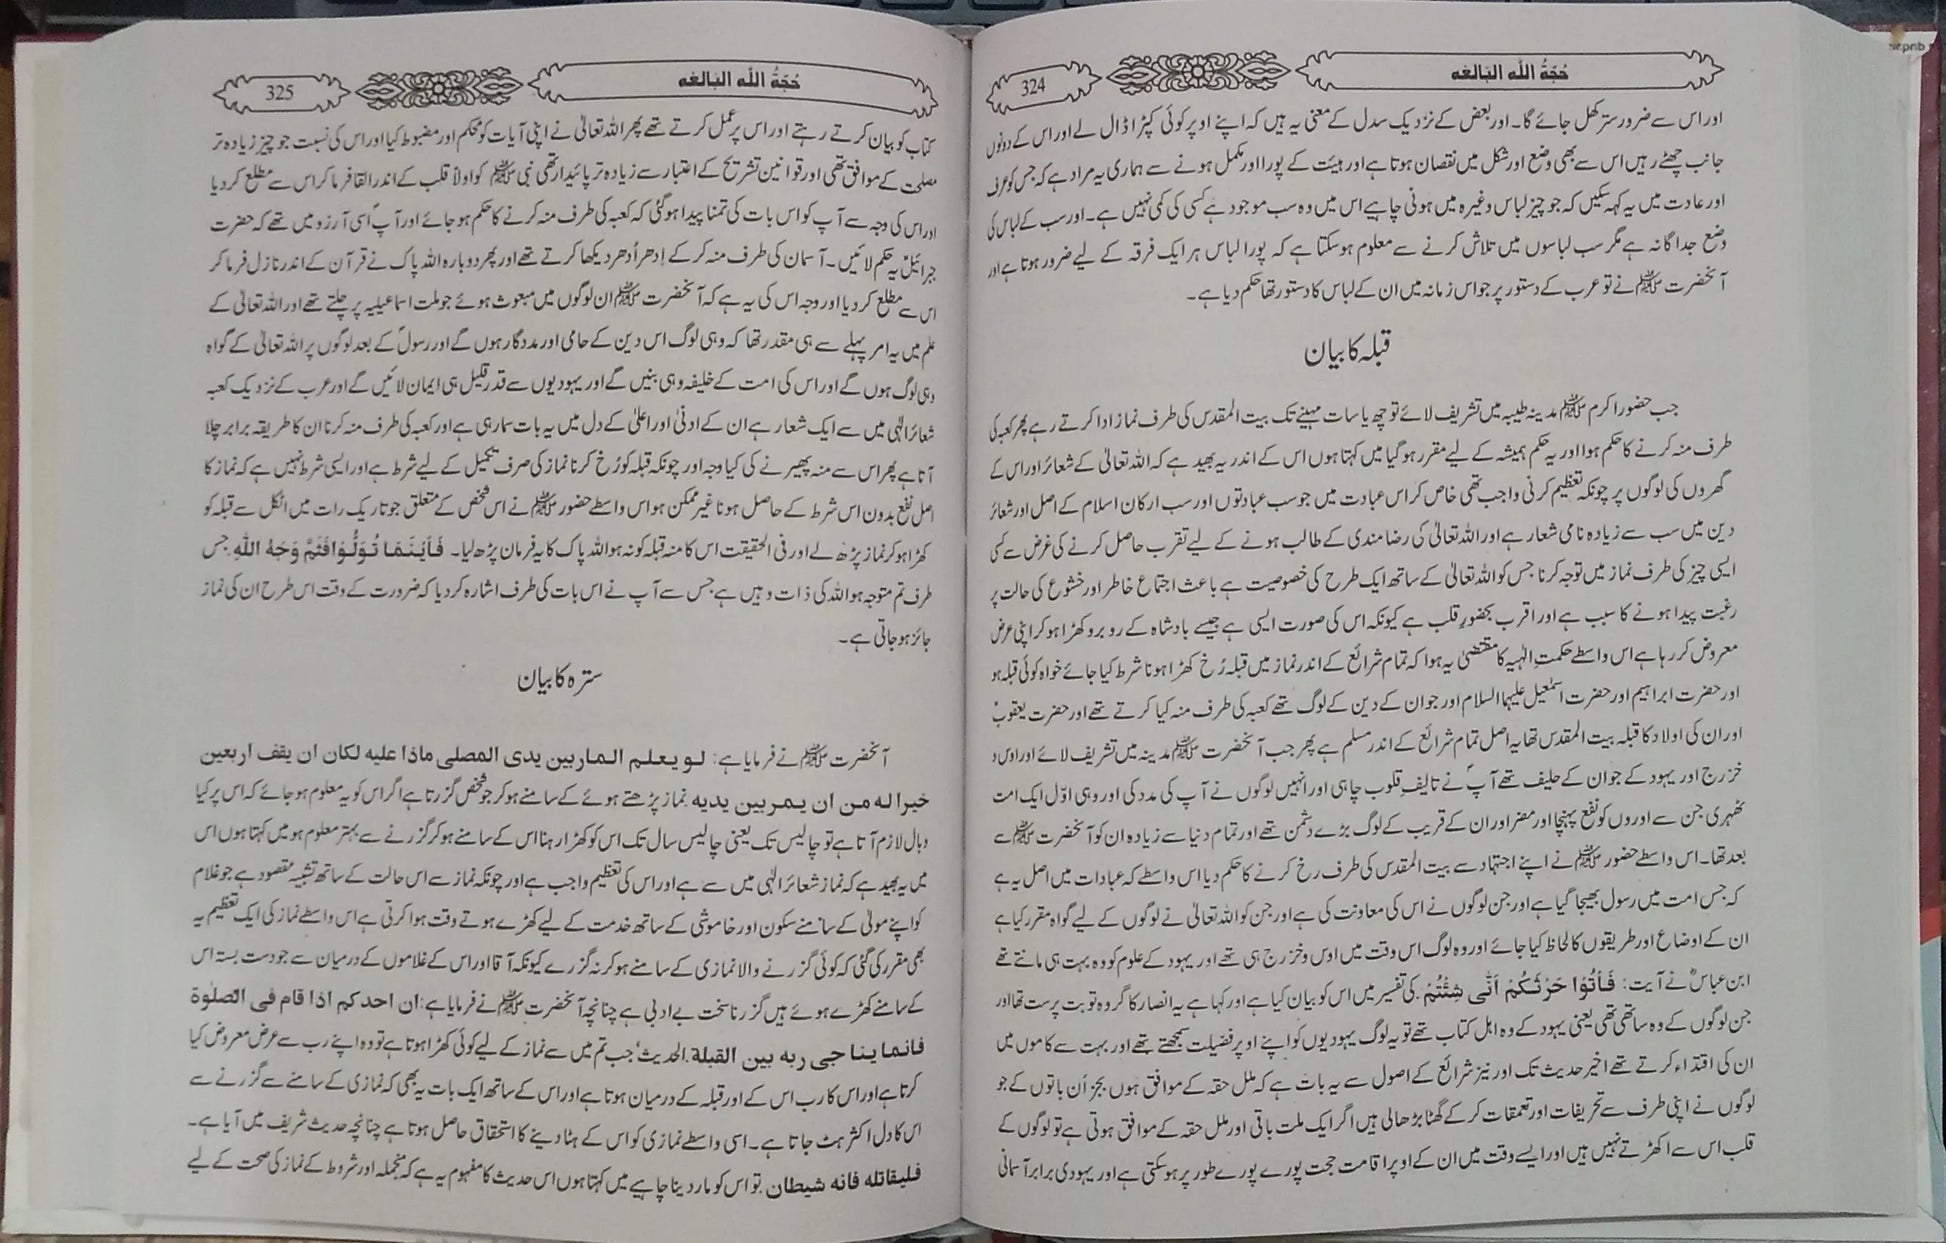 حُجَّةُ اللّٰه البَالغه
324
اور اس سے ضرور ستر کھل جائے گا۔ اور بعض کے نزدیک سدل کے معنی یہ ہیں کہ اپنے اوپر کوئی کپڑا ڈال لے اور اس کے دونوں
جانب چھٹے رہیں اس سے بھی وضع اور شکل میں نقصان ہوتا ہے اور ہیئت کے پورا اور مکمل ہونے سے ہماری یہ مراد ہے کہ جس کو عرف
اور عادت میں یہ کہہ سکیں کہ جو چیز لباس وغیرہ میں ہونی چاہیے اس میں وہ سب موجود ہے کسی کی کمی نہیں ہے۔ اور سب کے لباس کی
وضع جداگانہ ہے مگر سب لباسوں میں تلاش کرنے سے معلوم ہو سکتا ہے کہ پورا لباس ہر ایک فرقہ کے لیے ضرور ہوتا ہے اور
آنحضرت ﷺ نے تو عرب کے دستور پر جو اس زمانہ میں ان کے لباس کا دستور تھا حکم دیا ہے۔
قبلہ کا بیان
جب حضور اکرم ﷺ مدینہ طیبہ میں تشریف لائے تو چھ یا سات مہینے تک بیت المقدس کی طرف نماز ادا کرتے رہے پھر کعبہ کی
طرف منہ کرنے کا حکم ہوا اور یہ حکم ہمیشہ کے لیے مقرر ہو گیا میں کہتا ہوں اس کے اندر یہ بھید ہے کہ اللہ تعالیٰ کے شعائر اور اس کے
گھروں کی لوگوں پر چونکہ تعظیم کرنی واجب تھی خاص کر اس عبادت میں جو سب عبادتوں اور سب ارکان اسلام کے اصل اور شعائر
دین میں سب سے زیادہ نامی شعار ہے اور اللہ تعالیٰ کی رضامندی کے طالب ہونے کے لیے تقرب حاصل کرنے کی غرض سے کسی
ایسی چیز کی طرف نماز میں توجہ کرنا جس کو اللہ تعالیٰ کے ساتھ ایک طرح کی خصوصیت ہے باعث اجتماع خاطر اور خشوع کی حالت پر
رغبت پیدا ہونے کا سبب ہے اور اقرب بحضور قلب ہے کیونکہ اس کی صورت ایسی ہے جیسے بادشاہ کے روبرو کھڑا ہو کر اپنی عرض
معروض کر رہا ہے اس واسطے حکمتِ الٰہیہ کا مقتضیٰ یہ ہوا کہ تمام شرائع کے اندر نماز میں قبلہ رُخ کھڑا ہونا شرط کیا جائے خواہ کوئی قبلہ ہو
اور حضرت ابراہیم اور حضرت اسمٰعیل علیہما السلام اور جو ان کے دین کے لوگ تھے کعبہ کی طرف منہ کیا کرتے تھے اور حضرت یعقوبؑ
اور ان کی اولاد کا قبلہ بیت المقدس تھا یہ اصل تمام شرائع کے اندر مسلم ہے پھر جب آنحضرت ﷺ مدینہ میں تشریف لائے اور اوس و
خزرج اور یہود کے جو ان کے حلیف تھے آپؐ نے تالیف قلوب چاہی اور انہیں لوگوں نے آپ کی مدد کی اور وہی اوّل ایک امت
ٹھہری جن سے اوروں کو نفع پہنچا اور مضر اور ان کے قریب کے لوگ بڑے دشمن تھے اور تمام دنیا سے زیادہ ان کو آنحضرت ﷺ سے
بعد تھا۔ اس واسطے حضور ﷺ نے اپنے اجتہاد سے بیت المقدس کی طرف رخ کرنے کا حکم دیا اس واسطے کہ عبادات میں اصل یہ ہے
کہ جس امت میں رسول بھیجا گیا ہے اور جن لوگوں نے اس کی معاونت کی ہے اور جن کو اللہ تعالیٰ نے لوگوں کے لیے گواہ مقرر کیا ہے
ان کے اوضاع اور طریقوں کا لحاظ کیا جائے اور وہ لوگ اس وقت میں اوس و خزرج ہی تھے اور یہود کے علوم کو وہ بہت ہی مانتے تھے
ابن عباسؓ نے آیت: فَاْتُوْا حَرْثَكُمْ اَنّٰی شِئْتُمْ کی تفسیر میں اس کو بیان کیا ہے اور کہا ہے یہ انصار کا گروہ تو بت پرست تھا اور
جن لوگوں کے وہ ساتھی تھی یعنی یہود کے وہ اہل کتاب تھے تو یہ لوگ یہودیوں کو اپنے اوپر فضیلت سمجھتے تھے اور بہت سے کاموں میں
ان کی اقتداء کرتے تھے اخیر حدیث تک اور نیز شرائع کے اصول سے یہ بات ہے کہ ملل حقہ کے موافق ہوں بجز اُن باتوں کے جو
لوگوں نے اپنی طرف سے تحریفات اور تعمقات کر کے گھٹا بڑھا لی ہیں اگر ایک ملت باقی اور ملل حقہ کے موافق ہوتی ہے تو لوگوں کے
قلب اس سے اکھڑتے نہیں ہیں اور ایسے وقت میں ان کے اوپر اقامت حجت پورے پورے طور پر ہو سکتی ہے اور یہودی برابر آسمانی
حُجَّةُ اللّٰه البَالغه
325
کتاب کو بیان کرتے رہتے اور اس پر عمل کرتے تھے پھر اللہ تعالیٰ نے اپنی آیات کو محکم اور مضبوط کیا اور اس کی نسبت جو چیز زیادہ تر
مصلحت کے موافق تھی اور قوانین تشریح کے اعتبار سے زیادہ تر پائیدار تھی نبی ﷺ کو اولاً قلب کے اندر القا فرما کر اس سے مطلع کر دیا
اور اس کی وجہ سے آپ کو اس بات کی تمنا پیدا ہو گئی کہ کعبہ کی طرف منہ کرنے کا حکم ہو جائے اور آپؐ اسی آرزو میں تھے کہ حضرت
جبرائیلؑ یہ حکم لائیں۔ آسمان کی طرف منہ کر کے اِدھر اُدھر دیکھا کرتے تھے اور پھر دوبارہ اللہ پاک نے قرآن کے اندر نازل فرما کر
اس سے مطلع کر دیا اور وجہ اس کی یہ ہے کہ آنحضرت ﷺ ان لوگوں میں مبعوث ہوئے جو ملت اسماعیلیہ پر چلتے تھے اور اللہ تعالیٰ کے
علم میں یہ امر پہلے سے ہی مقدر تھا کہ وہی لوگ اس دین کے حامی اور مددگار ہوں گے اور رسولؐ کے بعد لوگوں پر اللہ تعالیٰ کے گواہ
وہی لوگ ہوں گے اور اس کی امت کے خلیفہ وہی بنیں گے اور یہودیوں سے قدر قلیل ہی ایمان لائیں گے اور عرب کے نزدیک کعبہ
شعائر الٰہی میں سے ایک شعار ہے ان کے ادنیٰ اور اعلیٰ کے دل میں یہ بات سما رہی ہے اور کعبہ کی طرف منہ کرنا ان کا طریقہ برابر چلا
آتا ہے پھر اس سے منہ پھیرنے کی کیا وجہ اور چونکہ قبلہ کو رُخ کرنا نماز کی صرف تکمیل کے لیے شرط ہے اور ایسی شرط نہیں ہے کہ نماز کا
اصل نفع بدون اس شرط کے حاصل ہونا غیر ممکن ہو اس واسطے حضور ﷺ نے اس شخص کے متعلق جو تاریک رات میں اٹکل سے قبلہ کو
کھڑا ہو کر نماز پڑھ لے اور فی الحقیقت اس کا منہ قبلہ کو نہ ہو اللہ پاک کا یہ فرمان پڑھ لیا۔ فَاَيْنَمَا تُوَلُّوْا فَثَمَّ وَجْهُ اللّٰهِ جس
طرف تم متوجہ ہو اللہ کی ذات وہیں ہے جس سے آپ نے اس بات کی طرف اشارہ کر دیا کہ ضرورت کے وقت اس طرح ان کی نماز
جائز ہو جاتی ہے۔
سترہ کا بیان
آنحضرت ﷺ نے فرمایا ہے: لو يعلم المار بين يدى المصلى ماذا عليه لكان ان يقف اربعين
خيرا له من ان يمر بين يديه نماز پڑھتے ہوئے کے سامنے ہو کر جو شخص گزرتا ہے اگر اس کو یہ معلوم ہو جائے کہ اس پر کیا
وبال لازم آتا ہے تو چالیس تک یعنی چالیس سال تک اس کو کھڑا رہنا اس کے سامنے ہو کر گزرنے سے بہتر معلوم ہو میں کہتا ہوں اس
میں یہ بھید ہے کہ نماز شعائر الٰہی میں سے ہے اور اس کی تعظیم واجب ہے اور چونکہ نماز سے اس حالت کے ساتھ تشبیہ مقصود ہے جو غلام
کو اپنے مولیٰ کے سامنے سکون اور خاموشی کے ساتھ خدمت کے لیے کھڑے ہوتے وقت ہوا کرتی ہے اس واسطے نماز کی ایک تعظیم یہ
بھی مقرر کی گئی کہ کوئی گزرنے والا نمازی کے سامنے ہو کر نہ گزرے کیونکہ آقا اور اس کے غلاموں کے درمیان سے جو دست بستہ اس
کے سامنے کھڑے ہوئے ہیں گزرنا سخت بے ادبی ہے چنانچہ آنحضرت ﷺ نے فرمایا ہے: ان احدكم اذا قام فى الصلوة
فانما يناجى ربه بين القبلة الحدیث، جب تم میں سے نماز کے لیے کوئی کھڑا ہوتا ہے تو وہ اپنے رب سے عرض معروض کیا
کرتا ہے اور اس کا رب اس کے اور قبلہ کے درمیان ہوتا ہے اور اس کے ساتھ ایک بات یہ بھی کہ نمازی کے سامنے سے گزرنے سے
اس کا دل اکثر ہٹ جاتا ہے۔ اسی واسطے نمازی کو اس کے ہٹا دینے کا استحقاق حاصل ہوتا ہے چنانچہ حدیث شریف میں آیا ہے۔
فليقاتله فانه شيطان تو اس کو مار دینا چاہیے میں کہتا ہوں اس حدیث کا مفہوم یہ ہے کہ منجملہ اور شروط کے نماز کی صحت کے لیے